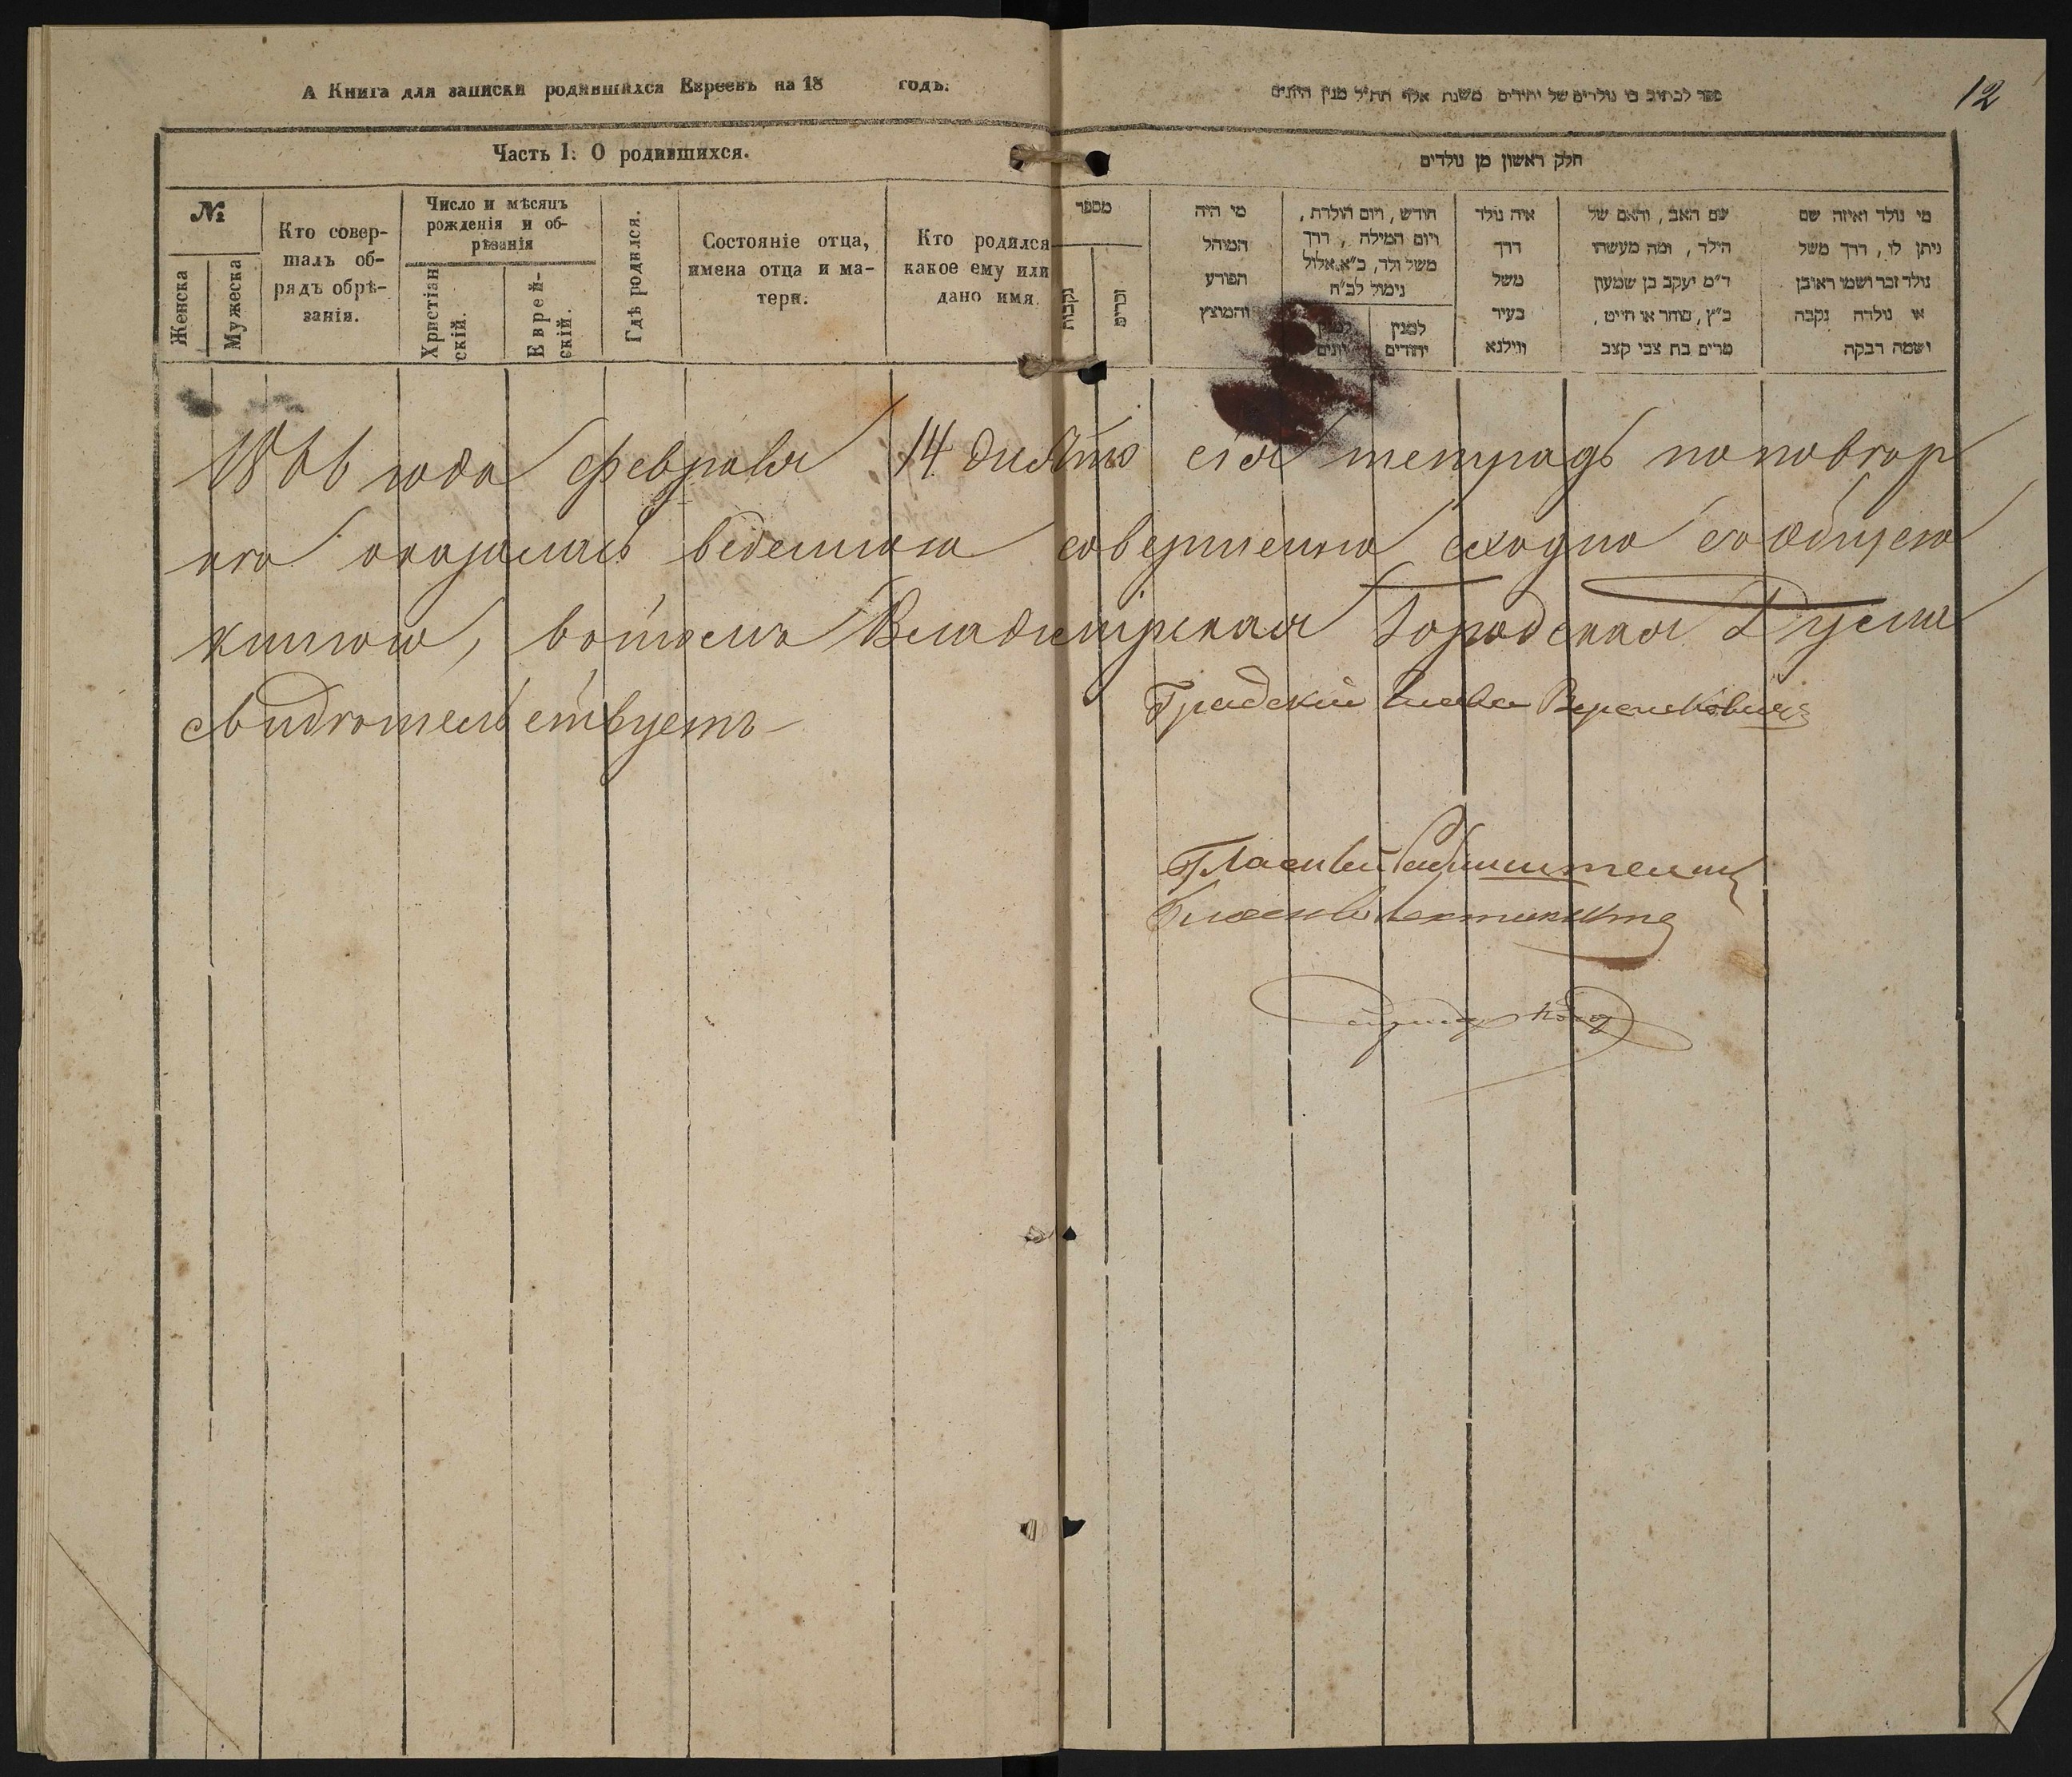 А Книга для записки родившихся Евреевъ на 18 годъ.
ספר לכתוב בו נולדים של יהודים משנת אלף תת״ל מנין היונים
12
Часть I. О родившихся.
חלק ראשון מן נולדים
№
Женска
Мужеска
Кто совер-
шалъ об-
рядъ обрѣ-
занія.
Число и мѣсяцъ
рожденія и об-
рѣзанія
Христіан
скій.
Еврей-
скій.
Гдѣ родился.
Состояніе отца,
имена отца и ма-
тери.
Кто родился
какое ему или
дано имя.
מספר
נקבות
זכרים
מי היה
המוהל
הפורע
והמוצץ
חודש, ויום הולדת,
ויום המילה, דרך
משל ולד, כ״א אלול
נימול לכ״ח
למנין
יונים
למנין
יהודים
איה נולד
דרך
משל
בעיר
ווילנא
שם האב, והאם של
הילד, ומה מעשהו
ד״מ יעקב בן שמעון
כ״ץ, סוחר או חייט,
מרים בת צבי קצב
מי נולד ואיזה שם
ניתן לו, דרך משל
נולד זכר ושמו ראובן
או נולדה נקבה
ושמה רבקה
1866 года февраля 14 дня сія тетрадь по повѣр
ке оказалась веденною совершенно сходно со общею
книгою, вотомъ Владимірская Городская Дума
свидѣтельствуетъ
Градскій Глава
Гласный
Гласный